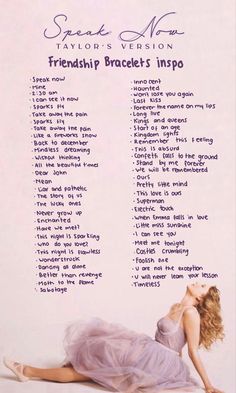 Speak Now
TAYLOR'S VERSION
Friendship Bracelets inspo
· Speak now
· Mine
· 2:30 am
· I can see it now
· Sparks fly
· Take away the pain
· Sparks fly
· Take away the pain
· Like a fireworks show
· Back to december
· Mindless dreaming
· Without thinking
· All the beautiful times
· Dear John
· Mean
· Liar and pathetic
· The story of us
· The lucky ones
· Never grow up
· Enchanted
· Have we met?
· This night is sparkling
· who do you love?
· This night is flawless
· Wonderstruck
· Dancing all alone
· Better than revenge
· Moth to the flame
· Sabotage
· Innocent
· Haunted
· Wont lose you again
· Last kiss
· Forever the name on my lips
· Long live
· Kings and queens
· Start of an age
· Kingdom lights
· Remember this feeling
· This is absurd
· Confetti falls to the ground
· Stand by me forever
· We will be remembered
· Ours
· Pretty little mind
· This love is ours
· Superman
· Electric touch
· When Emma falls in love
· Little miss sunshine
· I can see you
· Meet me tonight
· Castles crumbling
· Foolish one
· u are not the exception
· U will never learn your lesson
· Timeless